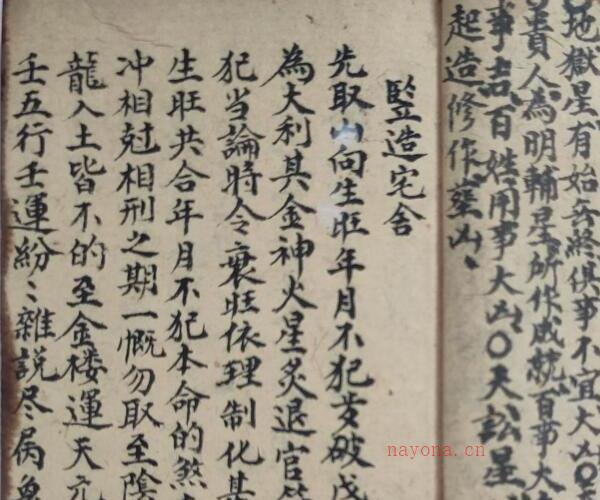 地獄星有始无終俱事不宜大凶〇
貴人為明輔星所作成就百事大
事吉百姓用事大凶〇天訟星
起造修作塟凶
竪造宅舍
先取山向生旺年月不犯歲破戊
為大利其金神火星炙退官
犯当論時令衰旺依理制化其
生旺共合年月不犯本命的煞
冲相尅相刑之期一慨勿取至陰
龍入土皆不的至金楼運天元
壬五行壬運紛〻雜説尽属
nayona.cn